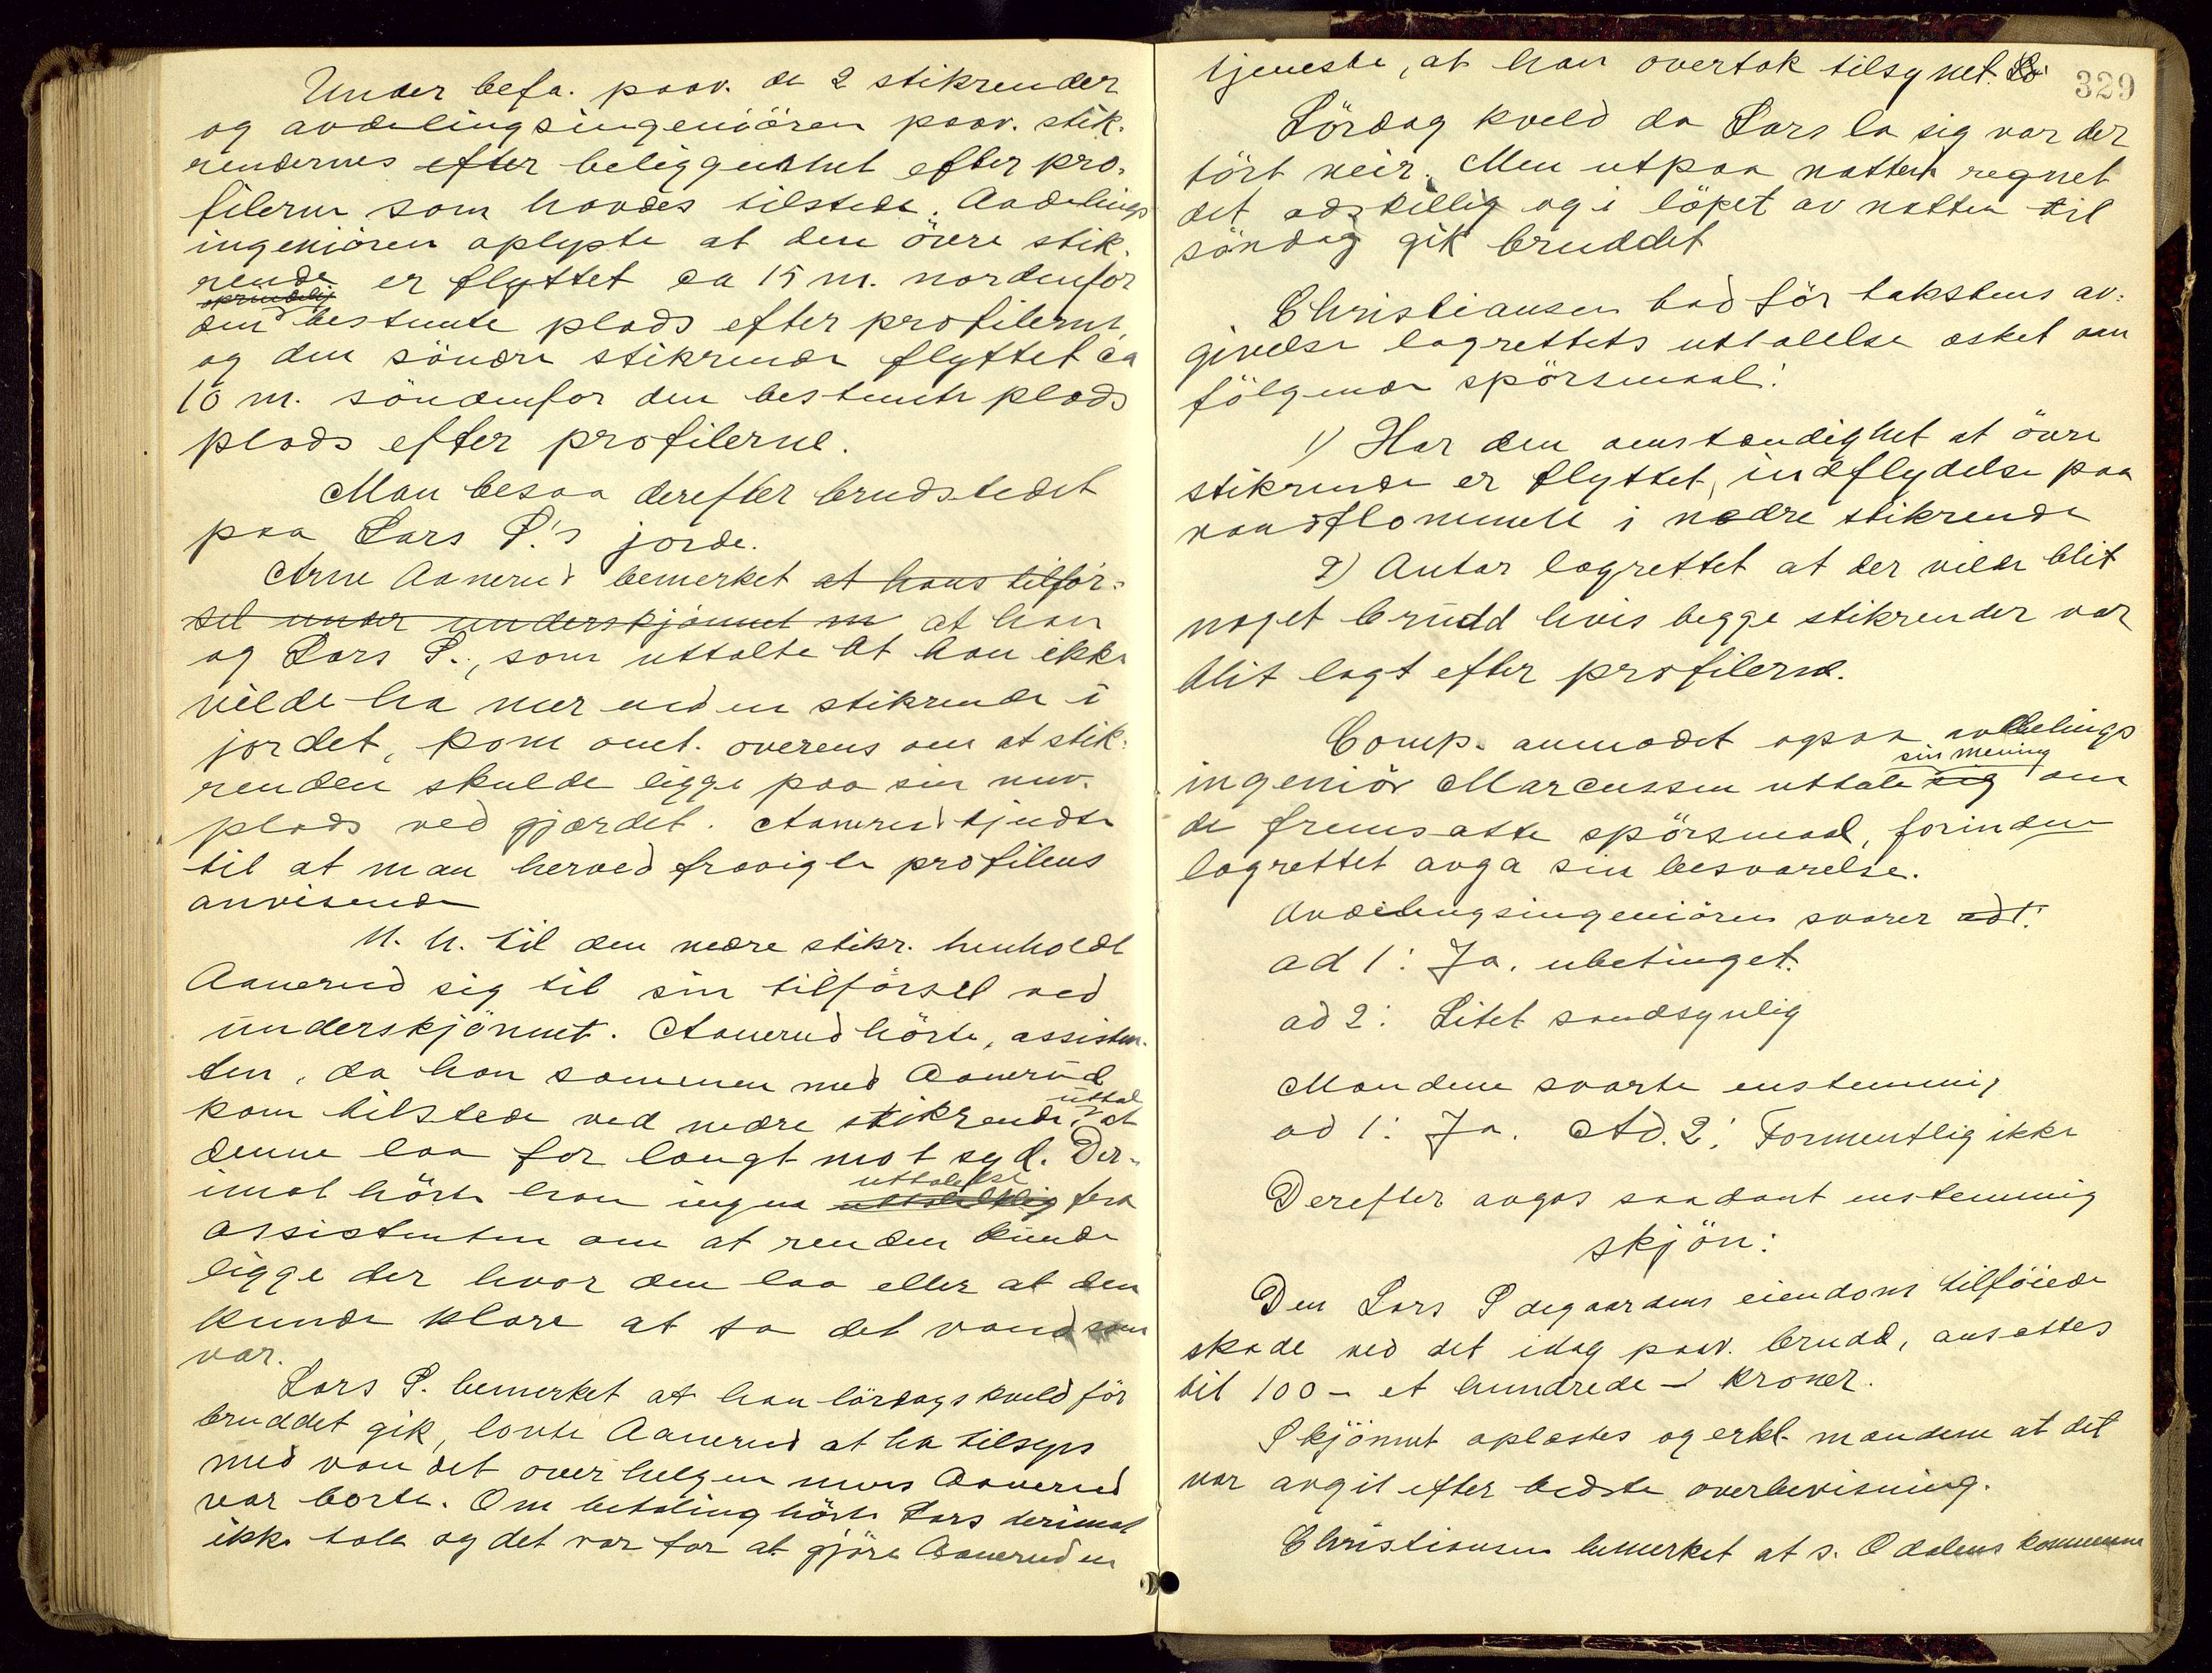 Under befa. paav. de 2 stikrender
og avdelingsingeniören paav. stik-
rendernes efter beliggenhet efter pro-
filerne som havdes tilstede. Avdelings
ingeniören oplyste at den övre stik-
rende er flyttet ca 15 m. nordenfor
oprindelig
den bestemte plads efter profilerne,
og den söndre stikrende flyttet ca
10 m. söndenfor den bestemte plads
plads efter profilerne.
Man besaa derefter brudstedet
paa Lars P.'s jorde.
Arne Aanerud bemerket at hans tilför-
sel under underskjönnet m at han
og Lars P., som uttalte at han ikke
vilde ha mer end en stikrende i
jordet, kom omt. overens om at stik-
renden skulde ligge paa sin nuv.
plads ved gjærdet. Aanerud kjendte
til at man herved fravigte profilens
anvisende
M. h. til den nedre stikr. henholdt
Aanerud sig til sin tilförsel ved
underskjönnet. Aanerud hörte, assisten-
ten, da han sammen med Aanerud
uttal
kom tilstede ved nedre stikrende, at
denne laa for langt mot syd. Der-
uttalelse
imot hörte han ingen fra
assistenten om at renden kunde
ligge der hvor den laa eller at den
kunde klare at ta det vand som
var.
Lars P. bemerket at han lördags kveld för
bruddet gik, lovte Aanerud at ha tilsyn
med vandet over helgen mens Aanerud
var borte. Om betaling hörte Lars derimot
ikke tale og det var for at gjöre Aanerud en
329
tjeneste, at han overtok tilsynet. Lö
Lördag kveld da Lars la sig var der
tört veir. Men utpaa natten regnet
det adskillig og i löpet av natten til
söndag gik bruddet
Christiansen bad för takstens av-
givelse lagrettets uttalelse æsket om
fölgende spörsmaal:
1) Har den omstændighet at övre
stikrende er flyttet, indflydelse paa
vandflommene i nedre stikrende
2) Antar lagrettet at der vilde blit
noget brudd hvis begge stikrender var
blit lagt efter profilerne.
Comp. anmodet ogsaa avdelings
sin mening
ingeniör Marcussen uttale sig om
de fremsatte spörsmaal, forinden
lagrettet avga sin besvarelse.
Avdelingsingeniören svarer ad 1:
ad 1: Ja. ubetinget.
ad 2: Litet sandsynlig
Mændene svarte enstemmig
ad 1: Ja. Ad. 2: Formentlig ikke
Derefter avgas saadant enstemmig
skjön:
Den Lars Pdegaardens eiendom tilföiede
skade ved det idag paav. brudd, ansættes
til 100 – et hundrede – kroner.
Skjönnet oplæstes og erkl. mændene at det
var avgit efter bedste overbevisning.
Christiansen bemerket at s. Odalens kommune